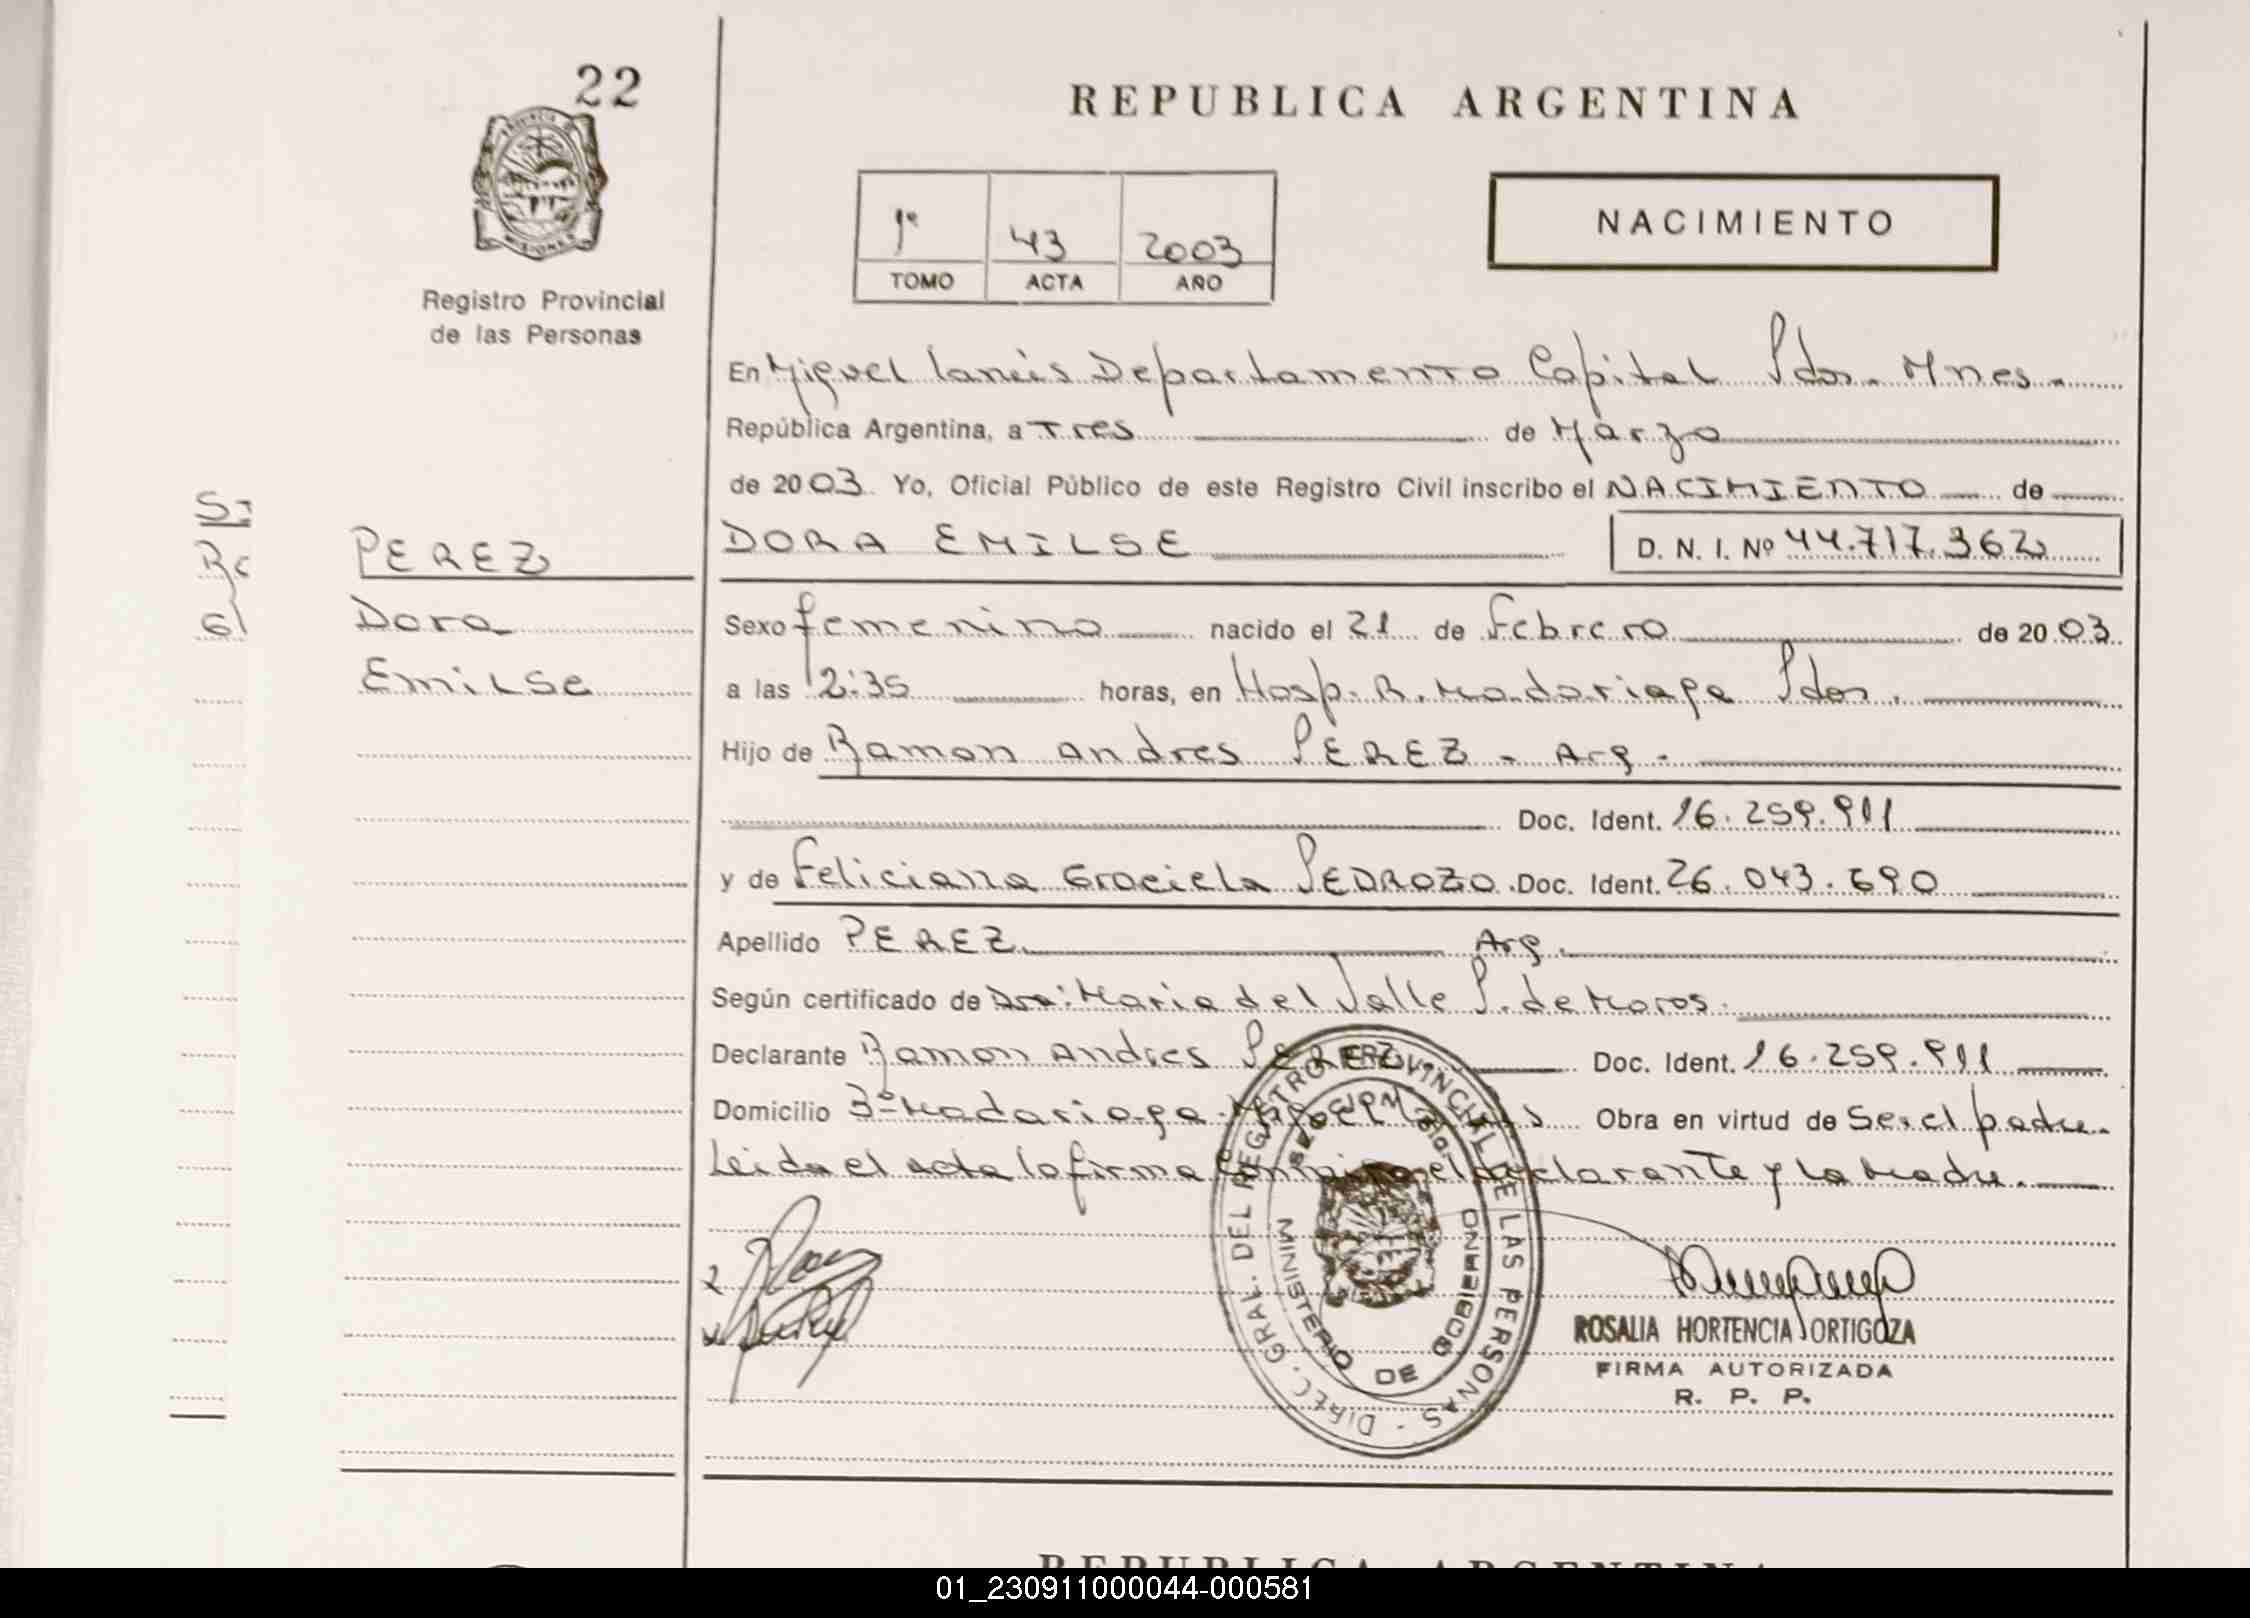 22
REPUBLICA ARGENTINA
PROVINCIA DE MISIONES
Registro Provincial
de las Personas
1º 43 2003
TOMO ACTA AÑO
NACIMIENTO
En Miguel Lanús Departamento Capital Pdas. Mnes.
República Argentina, a Tres de Marzo
de 2003 Yo, Oficial Público de este Registro Civil inscribo el NACIMIENTO de
PEREZ
DORA EMILSE
D. N. I. Nº 44.717.362
Dora
Emilse
Sexo femenino nacido el 21 de Febrero de 2003
a las 12:35 horas, en Hosp. R. Madariaga Pdas.
Hijo de Ramon Andres PEREZ - Arg.
Doc. Ident. 16.259.911
y de Feliciana Graciela PEDROZO Doc. Ident. 26.043.690
Apellido PEREZ Arg.
Según certificado de Dra: Maria del Valle P. de Moros.
Declarante Ramon Andres PEREZ Doc. Ident. 16.259.911
Domicilio Bº Madariaga Miguel Lanús Obra en virtud de Ser el padre.
Leida el acta la firma conmigo el declarante y la Madre.
DIREC. GRAL. DEL REGISTRO PROVINCIAL DE LAS PERSONAS
MINISTERIO DE GOBIERNO
ROSALIA HORTENCIA ORTIGOZA
FIRMA AUTORIZADA
R. P. P.
REPUBLICA ARGENTINA
01_230911000044-000581